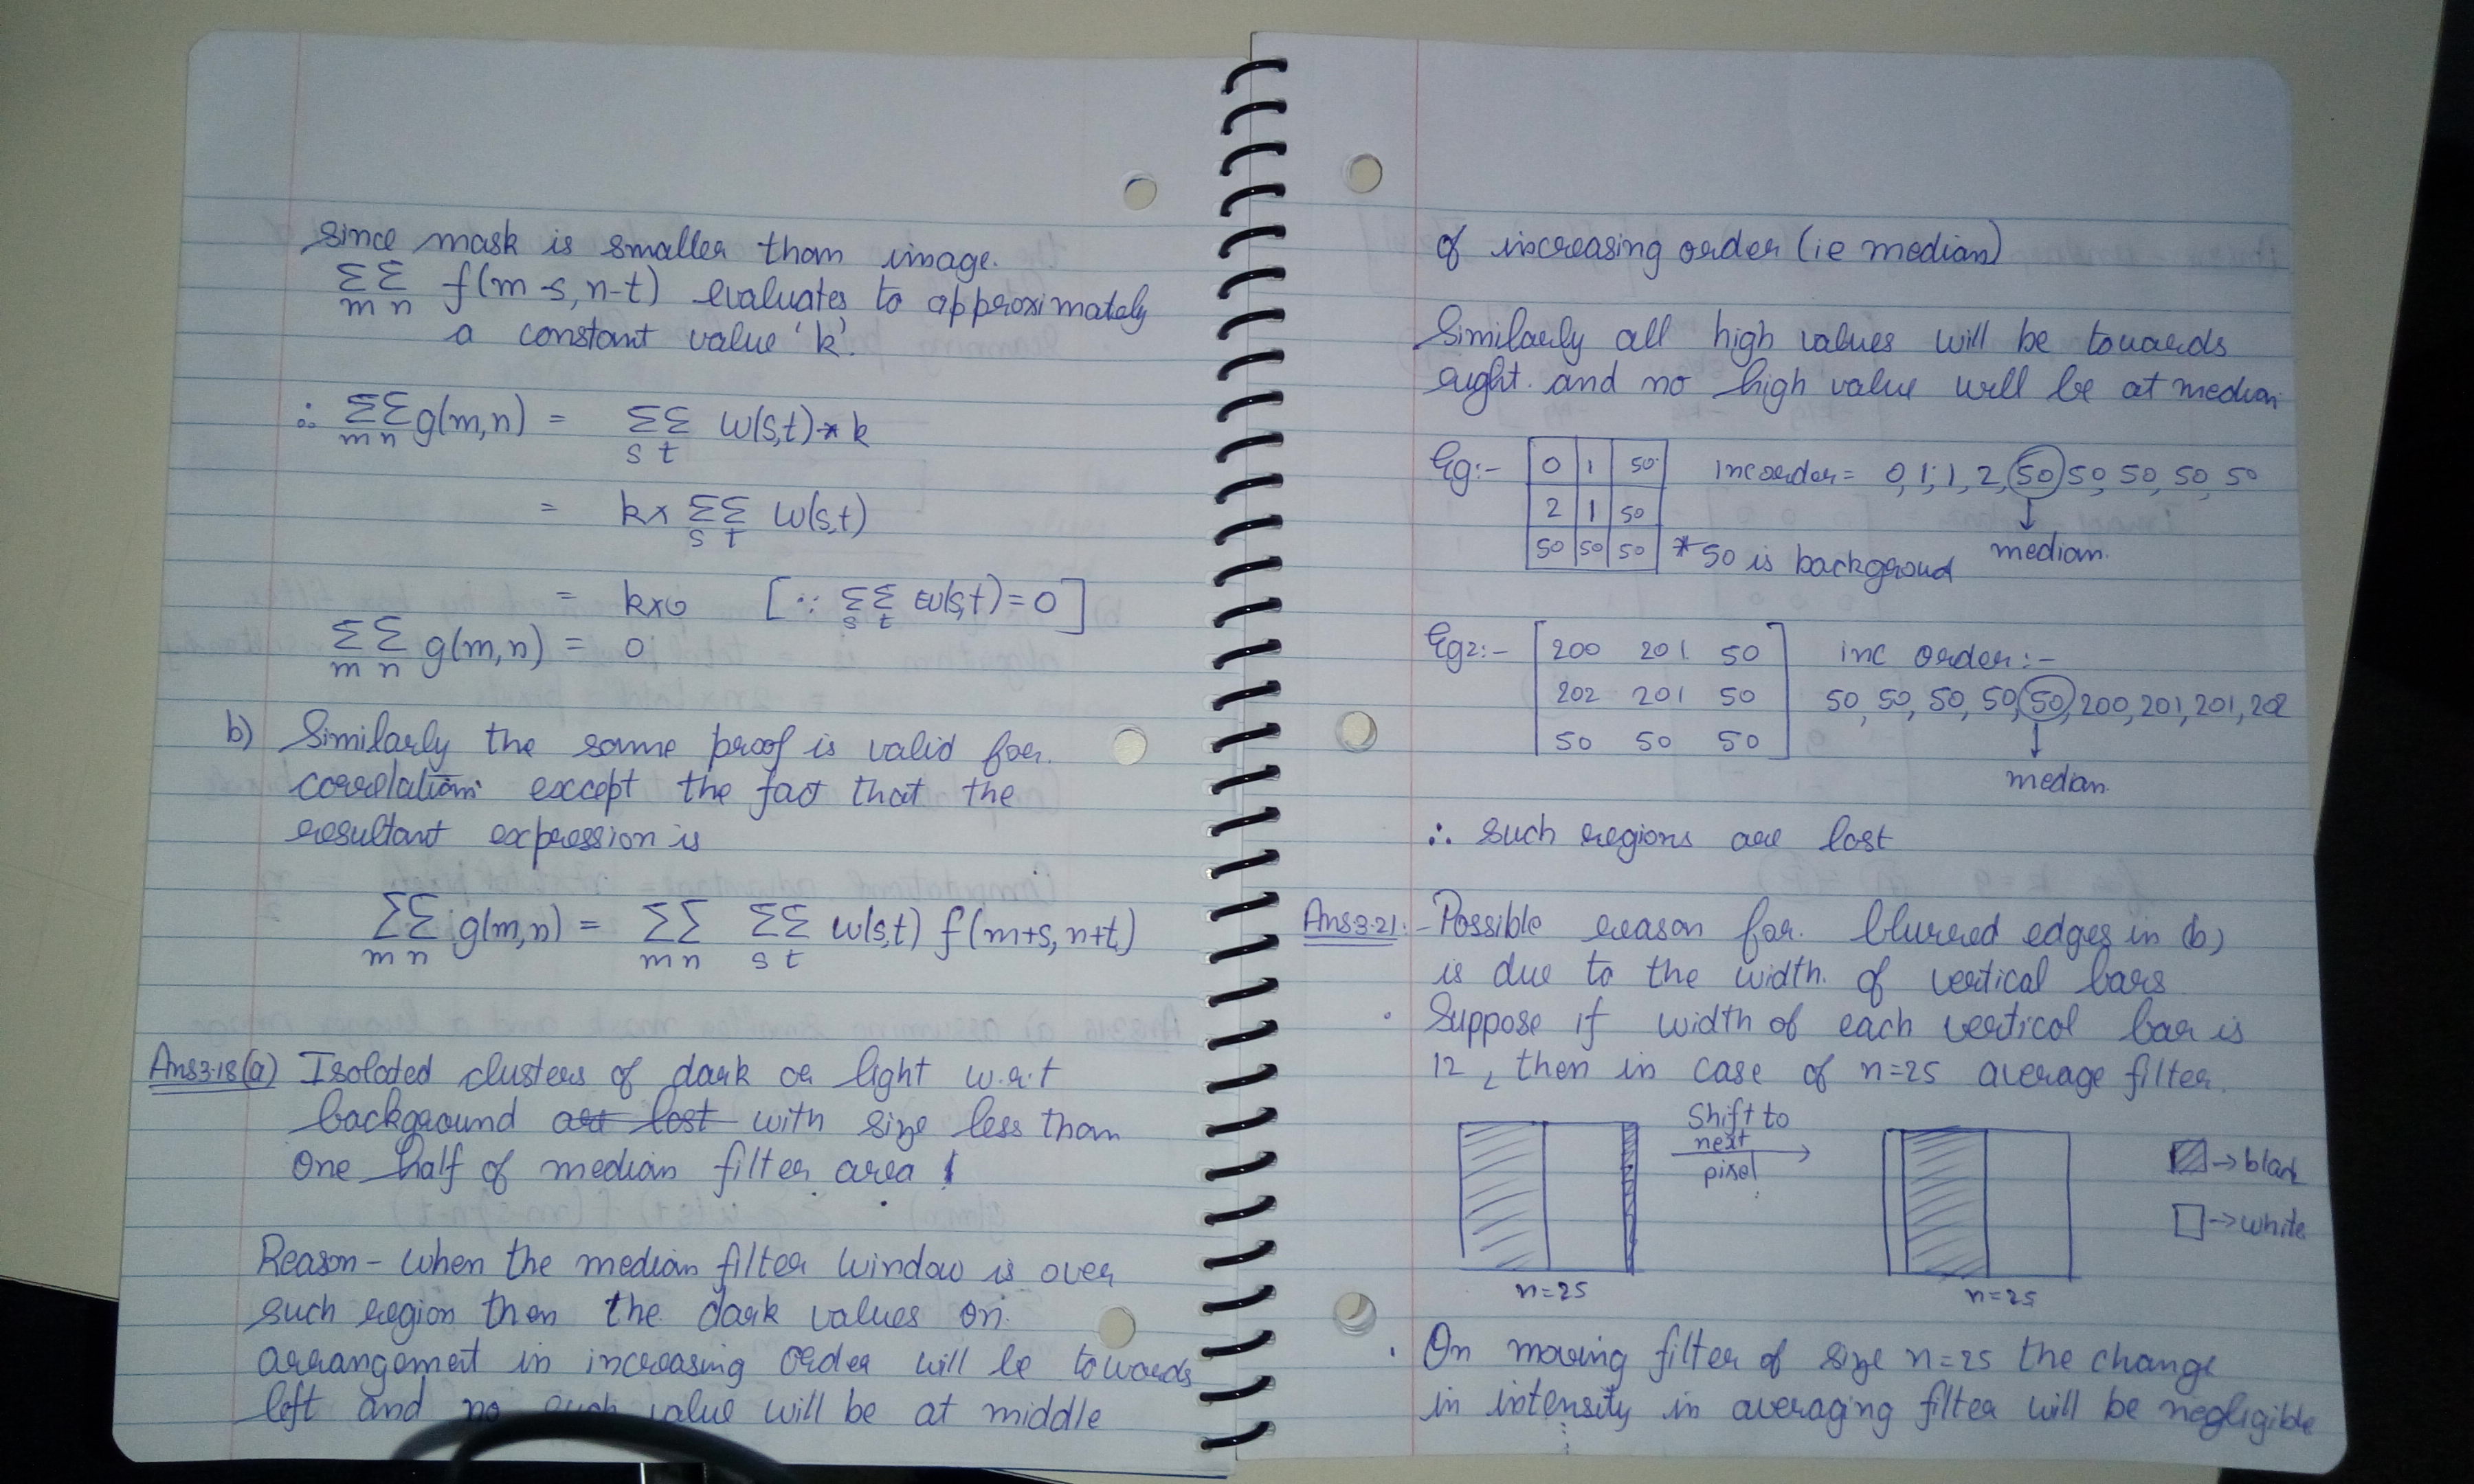 Since mask is smaller than image.
ΣΣ f(m-s, n-t) evaluates to approximately
m n
a constant value 'k'.
∴ ΣΣ g(m,n) = ΣΣ w(s,t) * k
m n s t
= k x ΣΣ w(s,t)
s t
= kx0 [∵ ΣΣ w(s,t) = 0]
s t
ΣΣ g(m,n) = 0
m n
b) Similarly the same proof is valid for
correlation except the fact that the
resultant expression is
ΣΣ g(m,n) = ΣΣ ΣΣ w(s,t) f(m+s, n+t)
m n m n s t
Ans3.18(a) Isolated clusters of dark or light w.r.t
background are lost with size less than
one half of median filter area
Reason - when the median filter window is over
such region then the dark values on
arrangement in increasing order will be towards
left and no such value will be at middle
of increasing order (ie median)
Similarly all high values will be towards
right. and no high value will be at median
Eg:- 0 1 50 inc order = 0, 1, 1, 2, 50, 50, 50, 50, 50
2 1 50
50 50 50 * 50 is backgroud median.
Eg2:- 200 201 50 inc order:-
202 201 50 50, 50, 50, 50, 50, 200, 201, 201, 202
50 50 50
median.
∴ such regions are lost
Ans3.21:- Possible reason for blurred edges in (b)
is due to the width of vertical bars
. Suppose if width of each vertical bar is
12, then in case of n=25 average filter.
Shift to
next
pixel
→ black
→ white
n=25 n=25
. On moving filter of size n=25 the change
in intensity in averaging filter will be negligible